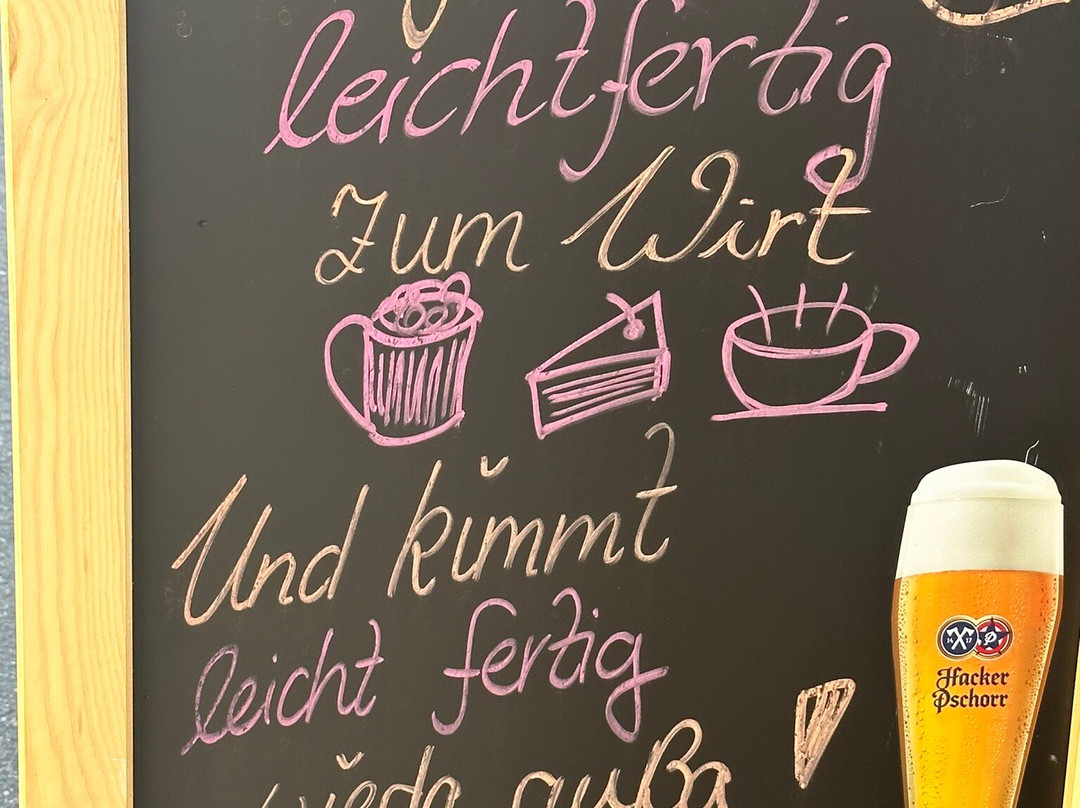 leichtfertig
Zum Wirt
Und kimmt
leicht fertig
wieda außa
14 17
Hacker
Pschorr